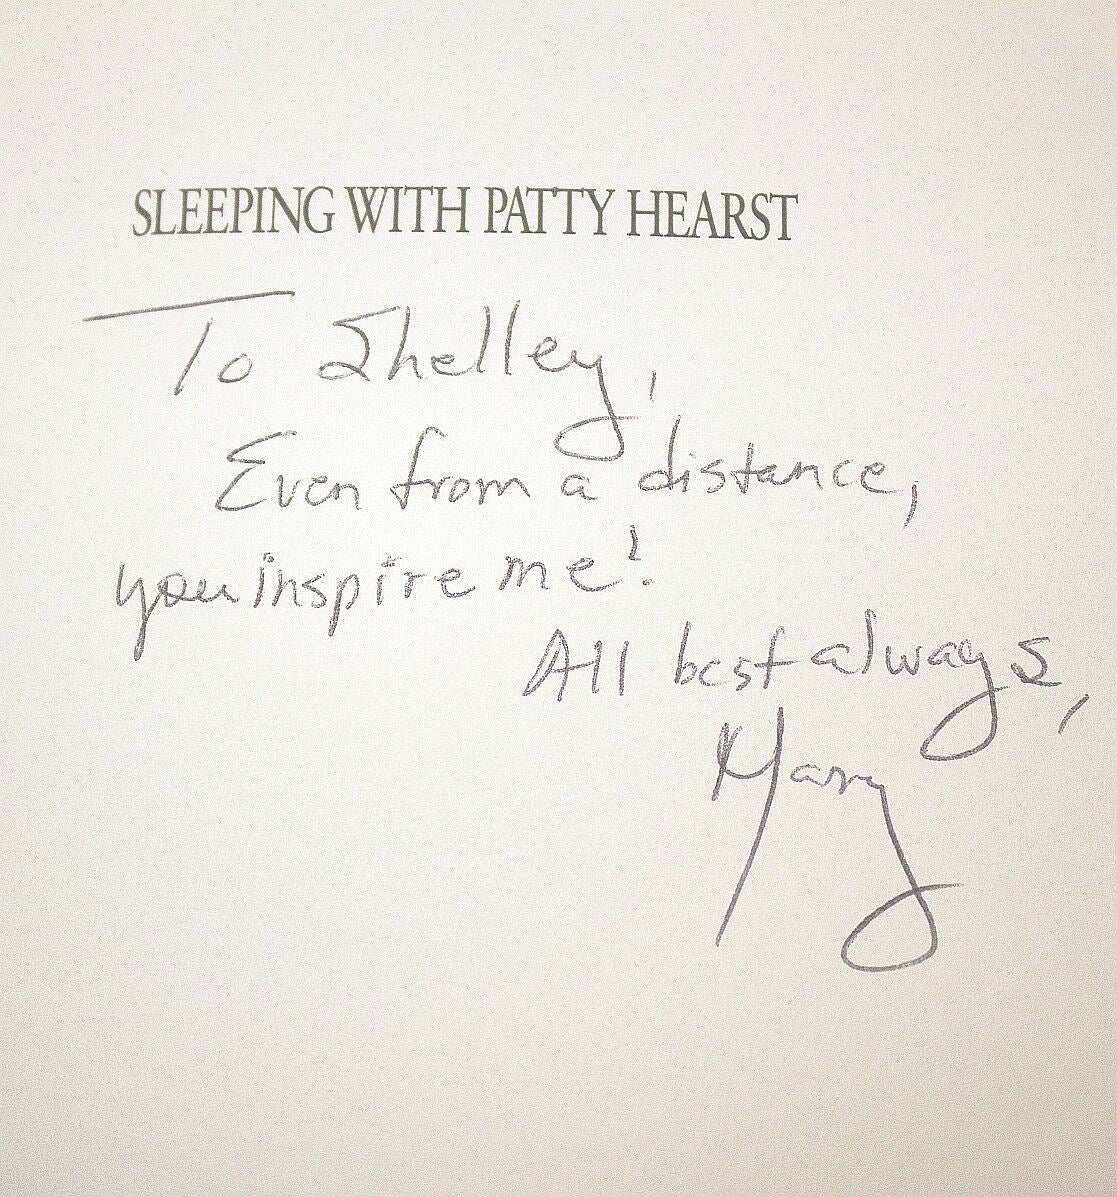 SLEEPING WITH PATTY HEARST
To Shelley,
Even from a distance,
you inspire me!
All best always,
Mary